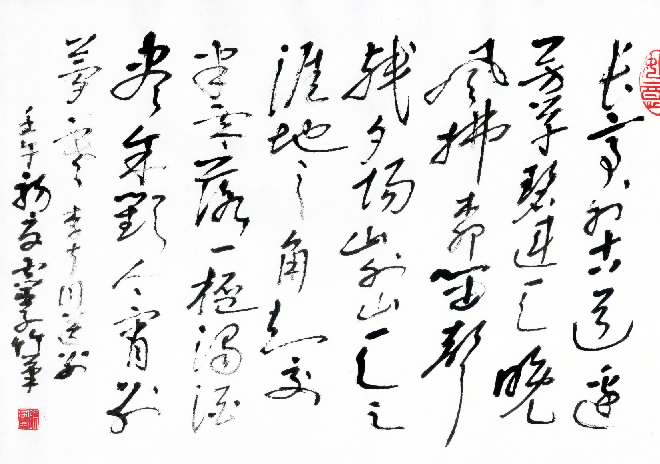 长亭外古道边
芳草碧连天晚
风拂柳笛声
残夕阳山外山天之
涯地之角知交
半零落一浊酒
尽余欢今宵别
梦寒 李叔同送别
壬午